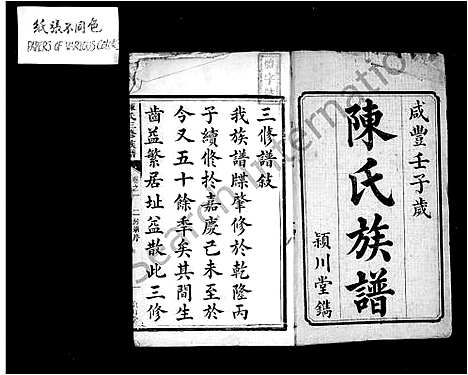 紙張不同色
PAPERS OF VARIOUS COLORS
咸豐壬子歲
陳氏族譜
潁川堂鐫
三修譜敍
我族譜牒肇修於乾隆丙
子續修於嘉慶己未至於
今又五十餘年矣其間生
齒益繁居址益散此三修
陳氏三修族譜